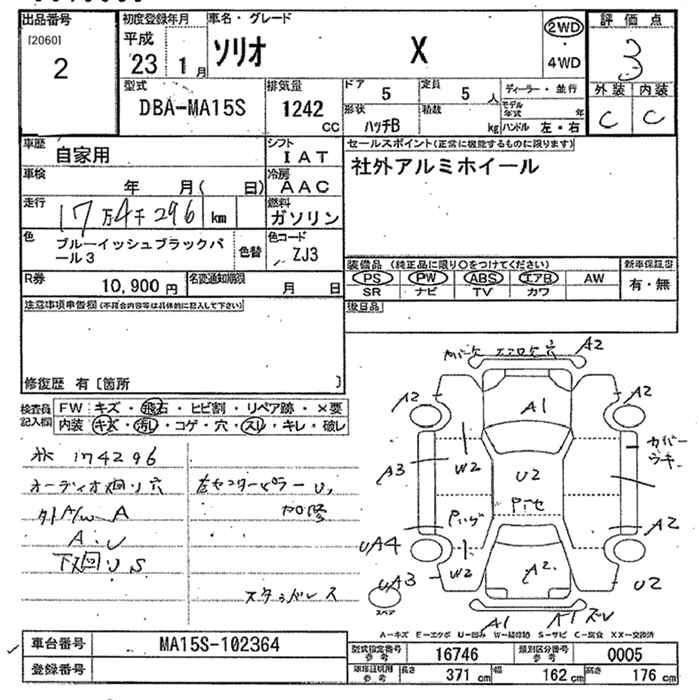 出品番号 初度登録年月 車名・グレード 評価点
[2060] 2
平成 23 1月 ソリオ X 2WD・4WD 3
型式 DBA-MA15S 排気量 1242 CC ドア 5 定員 5人 ディーラー・並行 外装 C 内装 C
形状 ハッチB 積載 kg モデル年式 年 ハンドル 左・右
車歴 自家用 シフト IAT セールスポイント(正常に機能するものに限ります)
車検 年 月( 日) 冷房 AAC 社外アルミホイール
走行 17万4千296 km 燃料 ガソリン
色 ブルーイッシュブラックパール3 色替 色コード ZJ3
装備品 (純正品に限り○をつけてください) 新車保証書
R券 10,900円 名変通知期限 月 日 PS PW ABS エアB AW 有・無
SR ナビ TV カワ
注意事項申告欄(不具合内容等は具体的に記入して下さい) 後日品
修復歴 有〔箇所 〕
検査員記入欄 FW キズ・飛石・ヒビ割・リペア跡・×要
内装 キズ・汚れ・コゲ・穴・スレ・キレ・破レ
174296
オーディオ廻り穴
外A/W A
A・U
下廻りS
左センターピラーU,
加修
スタッドレス
カバーケ エアロケ穴 A2
A2 A1 A2
カバーウキ
A3 W2 U2
Pいせ
A2
UA4 W2 A2 U2
UA3 スペア
A1 A1ズレ
A-キズ E-エクボ U-凹み W-補修跡 S-サビ C-腐食 XX-交換済
車台番号 MA15S-102364
登録番号
型式指定番号 参考 16746 類別区分番号 参考 0005
車庫証明用 参考 長さ 371 cm 幅 162 cm 高さ 176 cm